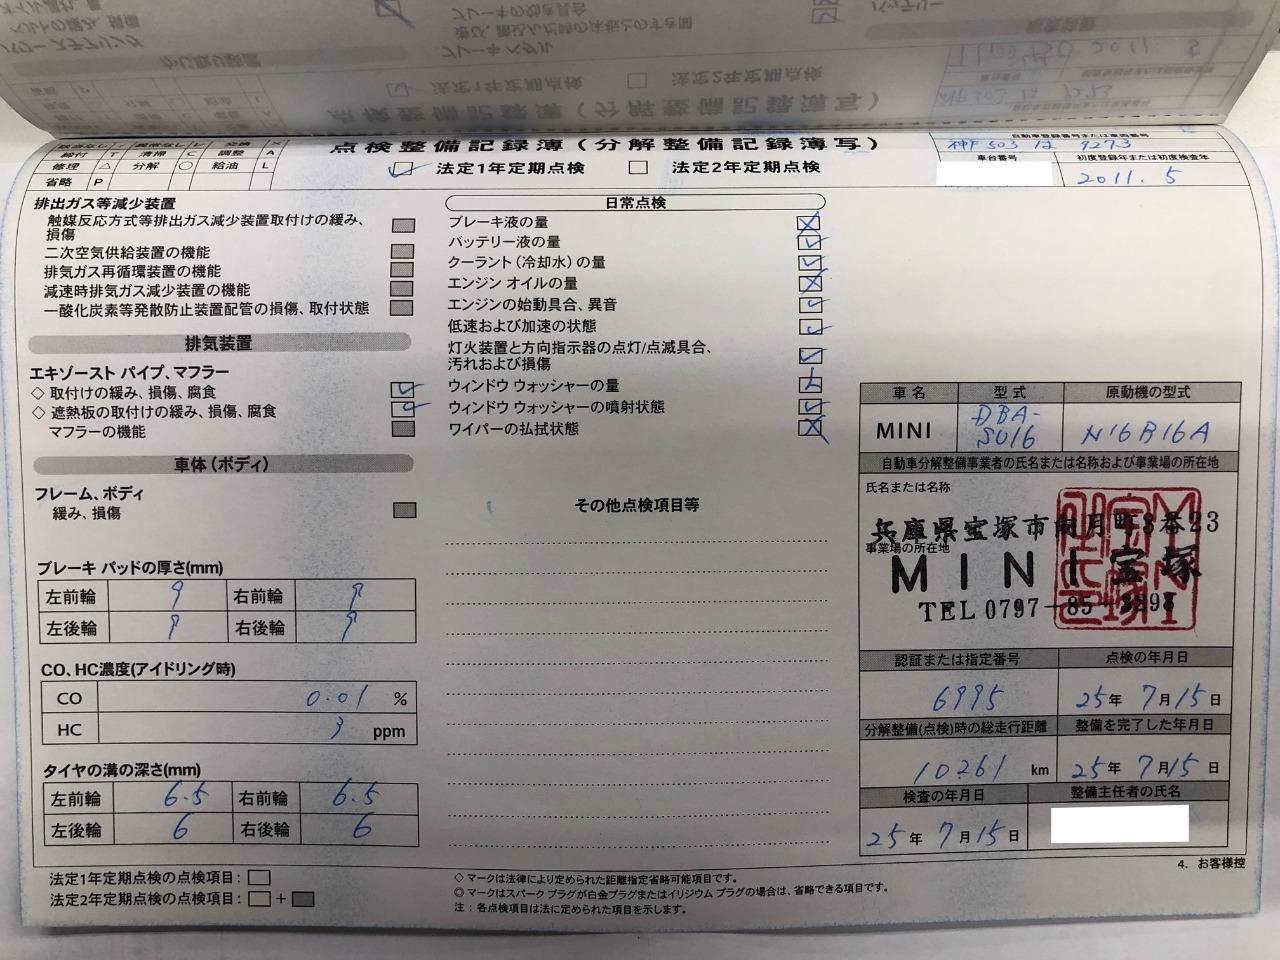 点検整備記録簿(分解整備記録簿写)
締付 T 清掃 C 調整 A
修理 △ 分解 ○ 給油 L
省略 P
法定1年定期点検 法定2年定期点検
自動車登録番号または車両番号
神戸503 は 9273
車台番号 初度登録年または初度検査年
2011.5
排出ガス等減少装置
触媒反応方式等排出ガス減少装置取付けの緩み、
損傷
二次空気供給装置の機能
排気ガス再循環装置の機能
減速時排気ガス減少装置の機能
一酸化炭素等発散防止装置配管の損傷、取付状態
排気装置
エキゾースト パイプ、マフラー
◇ 取付けの緩み、損傷、腐食
◇ 遮熱板の取付けの緩み、損傷、腐食
マフラーの機能
車体(ボディ)
フレーム、ボディ
緩み、損傷
ブレーキ パッドの厚さ(mm)
左前輪 9 右前輪 9
左後輪 9 右後輪 9
CO、HC濃度(アイドリング時)
CO 0.01 %
HC 3 ppm
タイヤの溝の深さ(mm)
左前輪 6.5 右前輪 6.5
左後輪 6 右後輪 6
法定1年定期点検の点検項目:
法定2年定期点検の点検項目: +
日常点検
ブレーキ液の量
バッテリー液の量
クーラント(冷却水)の量
エンジン オイルの量
エンジンの始動具合、異音
低速および加速の状態
灯火装置と方向指示器の点灯/点滅具合、
汚れおよび損傷
ウィンドウ ウォッシャーの量
ウィンドウ ウォッシャーの噴射状態
ワイパーの払拭状態
その他点検項目等
◇マークは法律により定められた距離指定省略可能項目です。
◎マークはスパーク プラグが白金プラグまたはイリジウム プラグの場合は、省略できる項目です。
注:各点検項目は法に定められた項目を示します。
車名 型式 原動機の型式
MINI DBA-SU16 N16B16A
自動車分解整備事業者の氏名または名称および事業場の所在地
氏名または名称
兵庫県宝塚市南月町3番23
事業場の所在地
MINI宝塚
TEL 0797-85-3298
認証または指定番号 点検の年月日
6995 25年 7月15日
分解整備(点検)時の総走行距離 整備を完了した年月日
10261 km 25年 7月15日
検査の年月日 整備主任者の氏名
25年 7月15日
4. お客様控